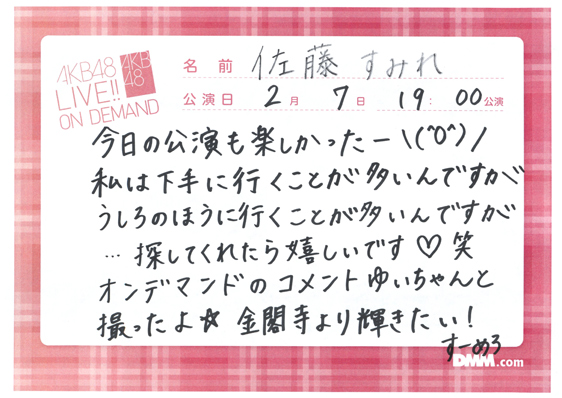 AKB48
LIVE!!
ON DEMAND
AKB
48
名前 佐藤すみれ
公演日 2月 7日 19:00公演
今日の公演も楽しかったー\(^O^)/
私は下手に行くことが多いんですが
うしろのほうに行くことが多いんですが
…探してくれたら嬉しいです♡笑
オンデマンドのコメントゆいちゃんと
撮ったよ☆ 金閣寺より輝きたい!
すーめろ
DMM.com